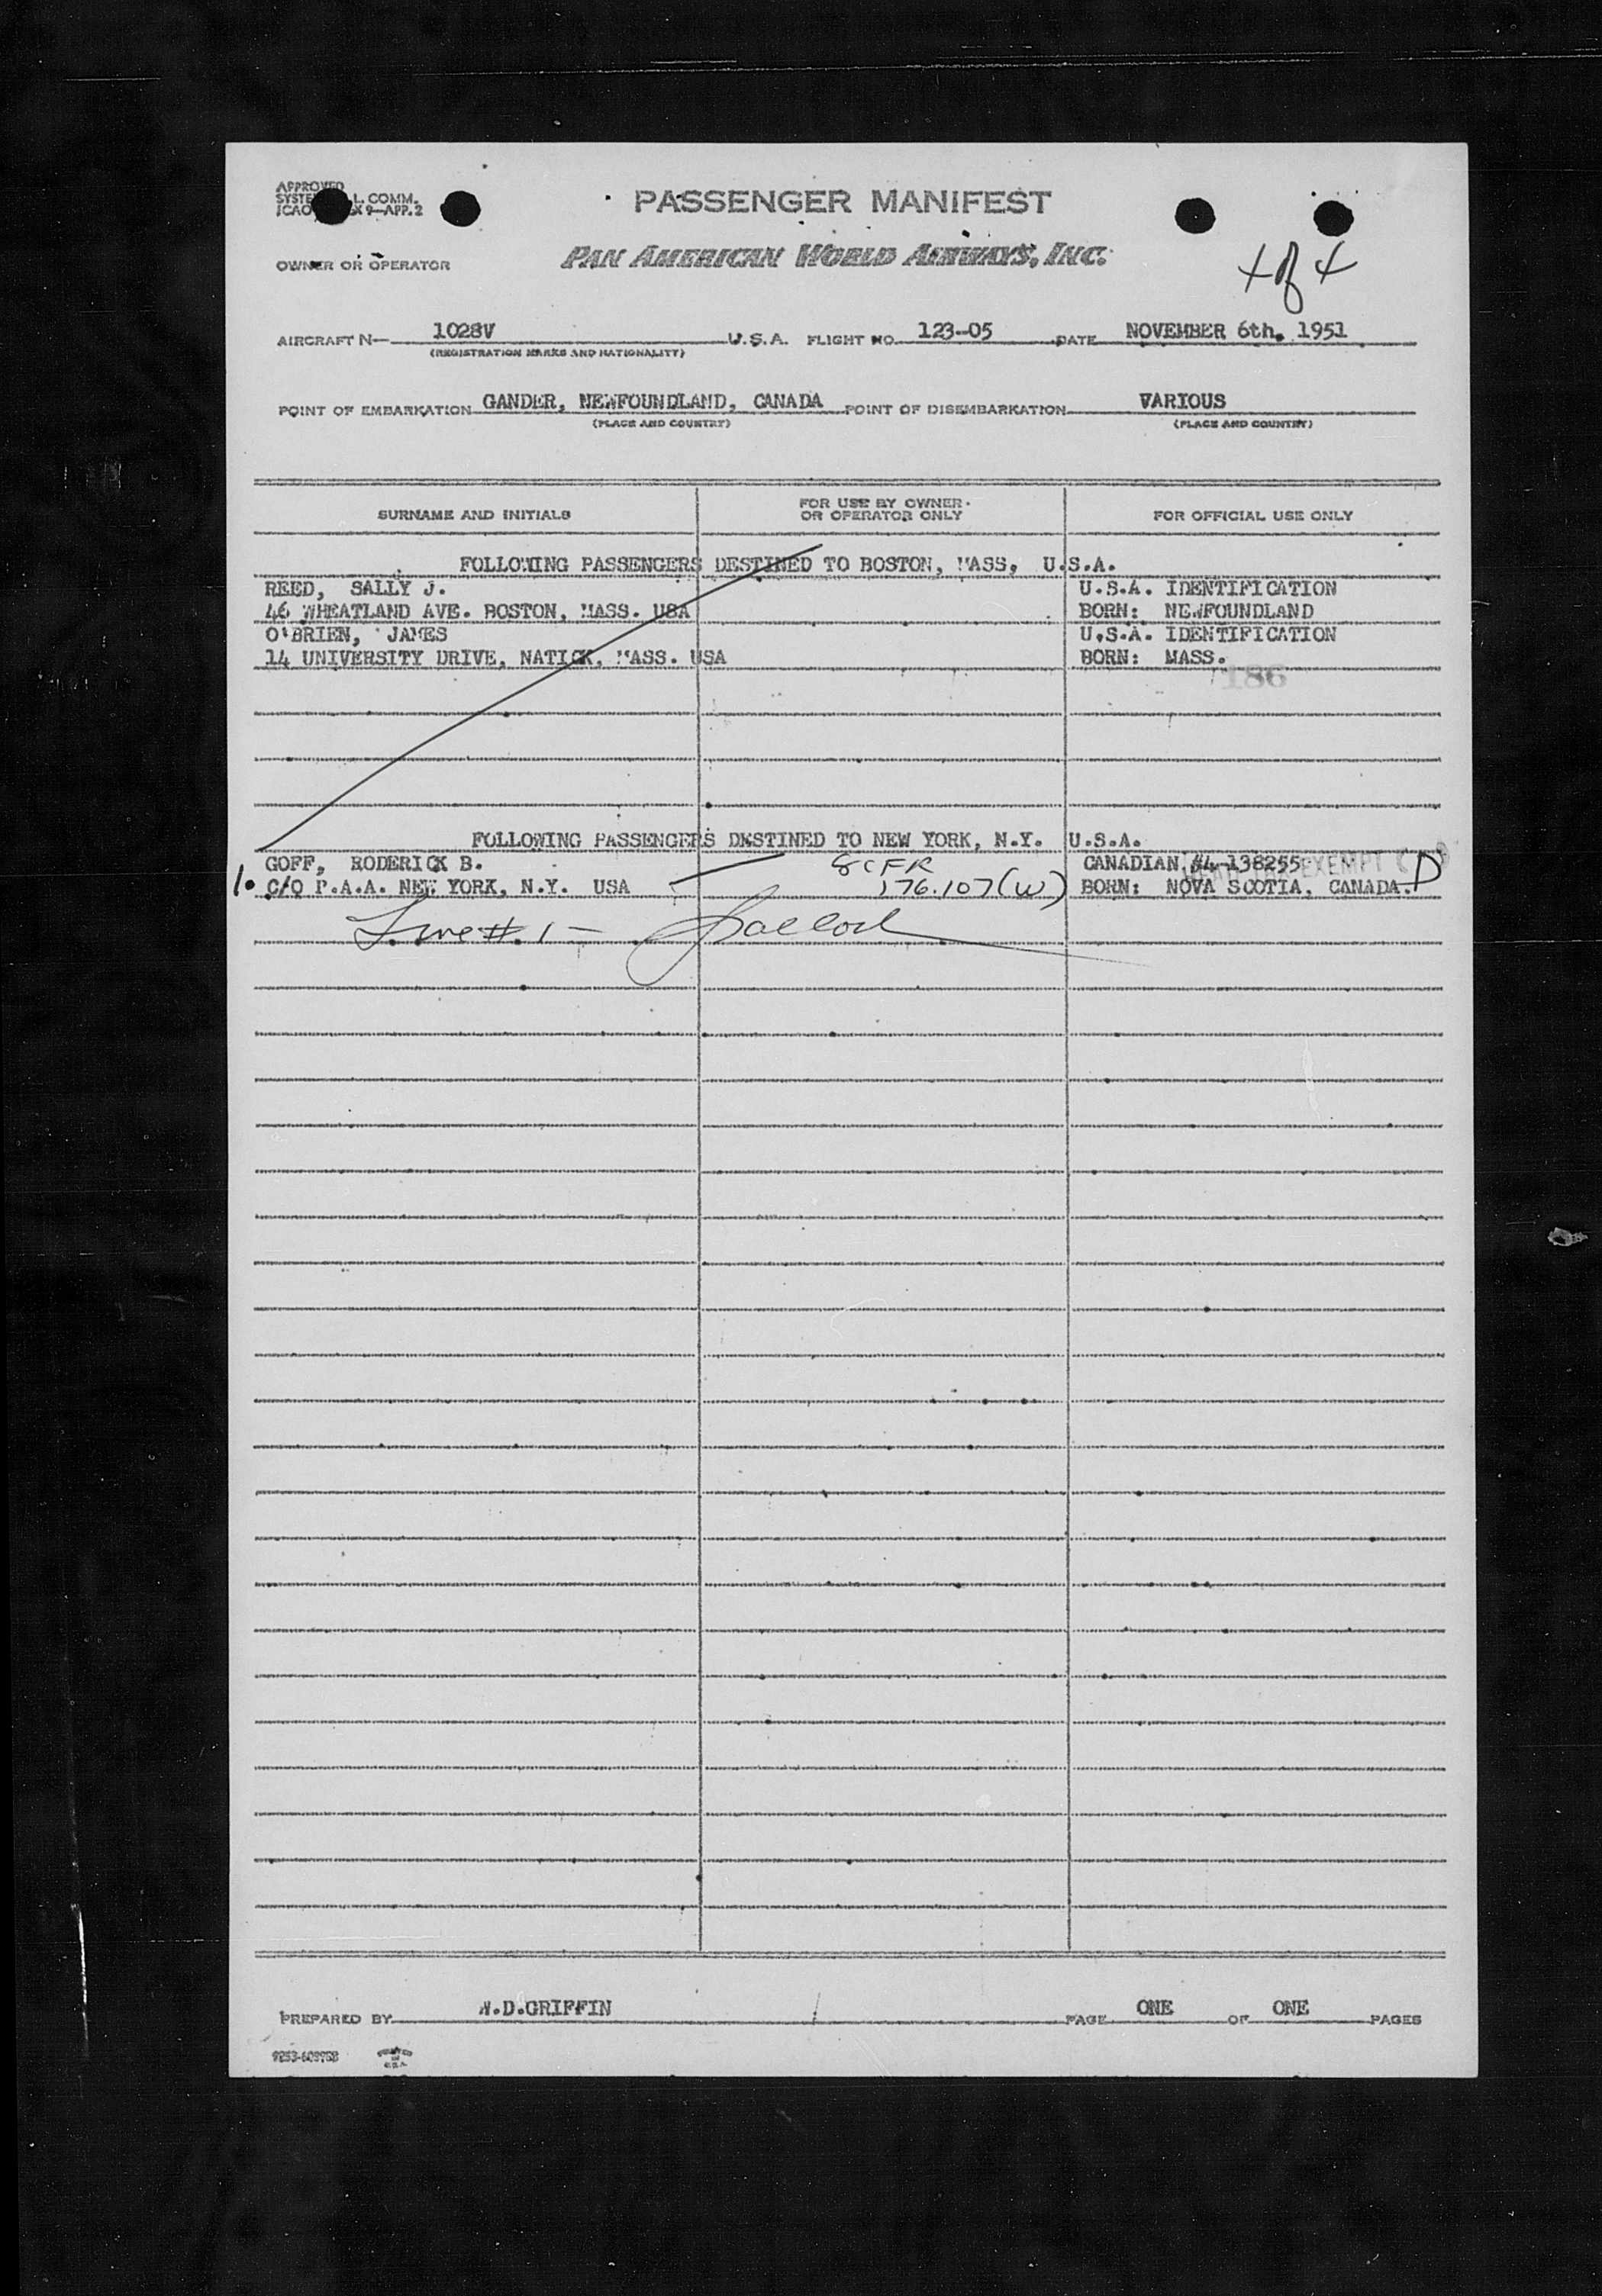 APPROVED
SYSTE L. COMM.
ICAO X 9—APP. 2
PASSENGER MANIFEST
OWNER OR OPERATOR PAN AMERICAN WORLD AIRWAYS, INC.
4 of 4
AIRCRAFT N— 1028V U.S.A. FLIGHT NO. 123-05 DATE NOVEMBER 6th. 1951
(REGISTRATION MARKS AND NATIONALITY)
POINT OF EMBARKATION GANDER, NEWFOUNDLAND, CANADA POINT OF DISEMBARKATION VARIOUS
(PLACE AND COUNTRY) (PLACE AND COUNTRY)
SURNAME AND INITIALS FOR USE BY OWNER OR OPERATOR ONLY FOR OFFICIAL USE ONLY
FOLLOWING PASSENGERS DESTINED TO BOSTON, MASS, U.S.A.
REED, SALLY J. U.S.A. IDENTIFICATION
46 WHEATLAND AVE. BOSTON, MASS. USA BORN: NEWFOUNDLAND
O'BRIEN, JAMES U.S.A. IDENTIFICATION
14 UNIVERSITY DRIVE, NATICK, MASS. USA BORN: MASS.
186
FOLLOWING PASSENGERS DESTINED TO NEW YORK, N.Y. U.S.A.
GOFF, RODERICK B. 8 CFR CANADIAN #4-138255 EXEMPT
1. C/O P.A.A. NEW YORK, N.Y. USA 176.107(W) BORN: NOVA SCOTIA, CANADA. D
Line # 1 —
PREPARED BY W.D.GRIFFIN PAGE ONE OF ONE PAGES